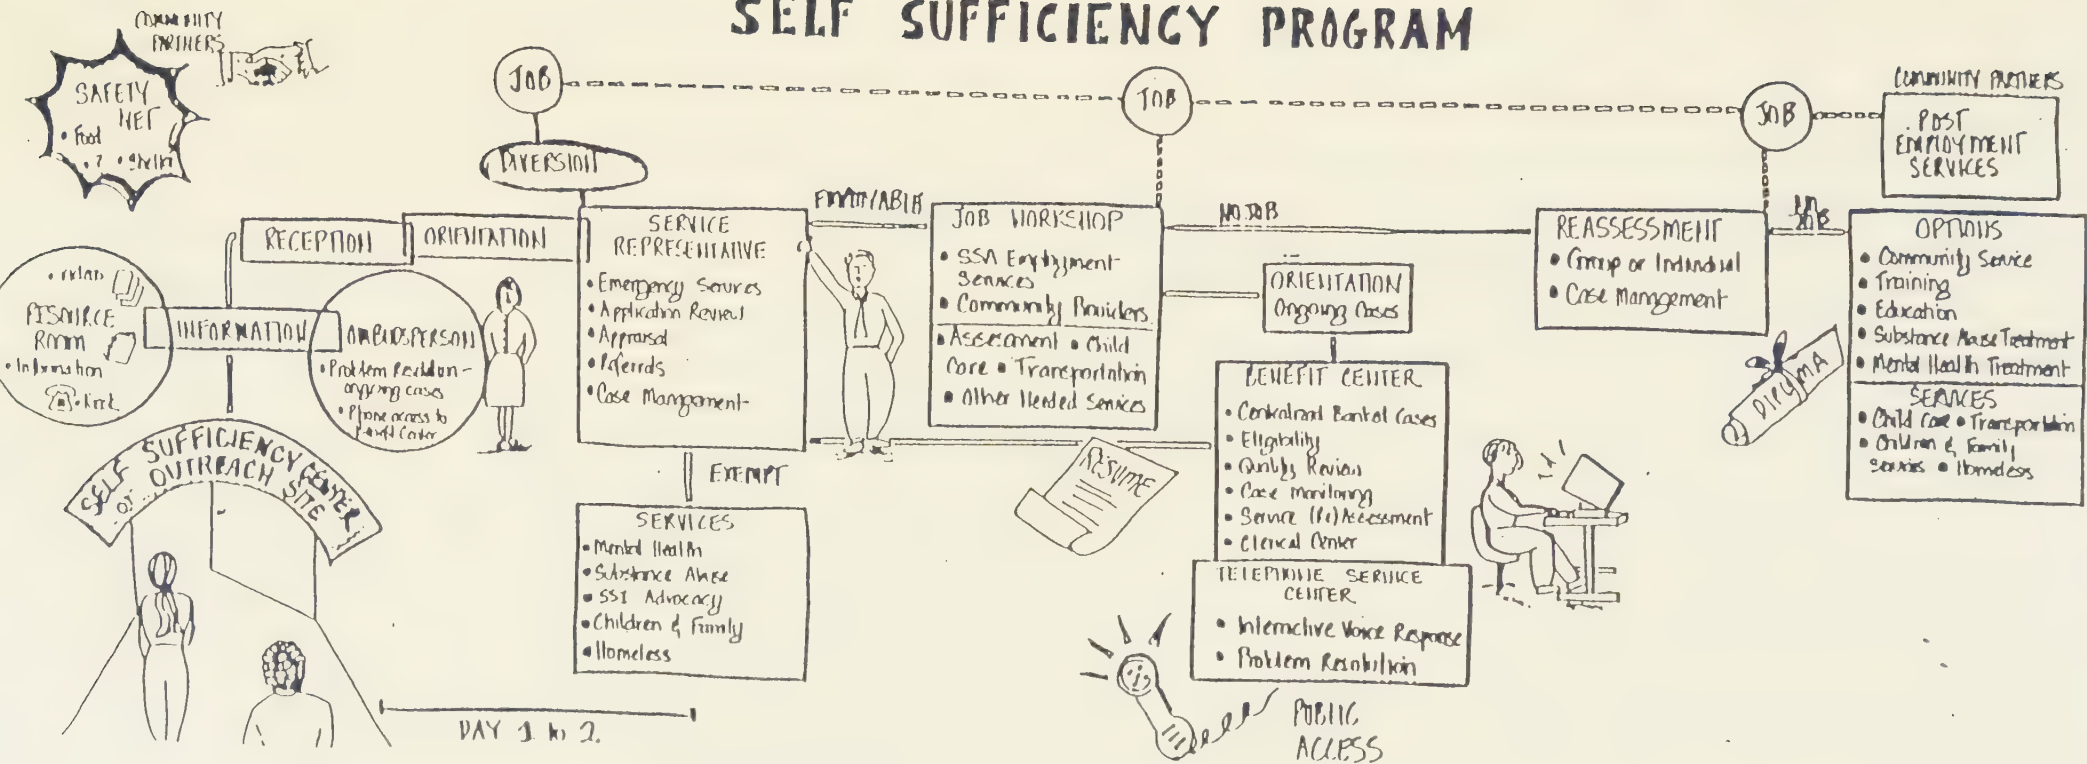 SELF SUFFICIENCY PROGRAM
COMMUNITY
PARTNERS
SAFETY
NET
• Food
• ? • Shelter
JOB
JOB
JOB
COMMUNITY PARTNERS
POST
EMPLOYMENT
SERVICES
DIVERSION
RECEPTION
ORIENTATION
RESOURCE
ROOM
• Information
INFORMATION
OMBUDSPERSON
• Problem Resolution -
ongoing cases
• Phone access to
Benefit Center
SELF SUFFICIENCY CENTER
or OUTREACH SITE
DAY 1 to 2
SERVICE
REPRESENTATIVE
• Emergency Services
• Application Review
• Appraisal
• Referrals
• Case Management
EXEMPT
SERVICES
• Mental Health
• Substance Abuse
• SSI Advocacy
• Children & Family
• Homeless
JOB WORKSHOP
• SSA Employment
Services
• Community Providers
• Assessment • Child
Care • Transportation
• Other Needed Services
RESUME
NO JOB
ORIENTATION
Ongoing Cases
BENEFIT CENTER
• Centralized Banked Cases
• Eligibility
• Quality Review
• Case Monitoring
• Service (Re)Assessment
• Clerical Center
TELEPHONE SERVICE
CENTER
• Interactive Voice Response
• Problem Resolution
PUBLIC
ACCESS
REASSESSMENT
• Group or Individual
• Case Management
NO
JOB
DIPLOMA
OPTIONS
• Community Service
• Training
• Education
• Substance Abuse Treatment
• Mental Health Treatment
SERVICES
• Child Care • Transportation
• Children & Family
Services • Homeless